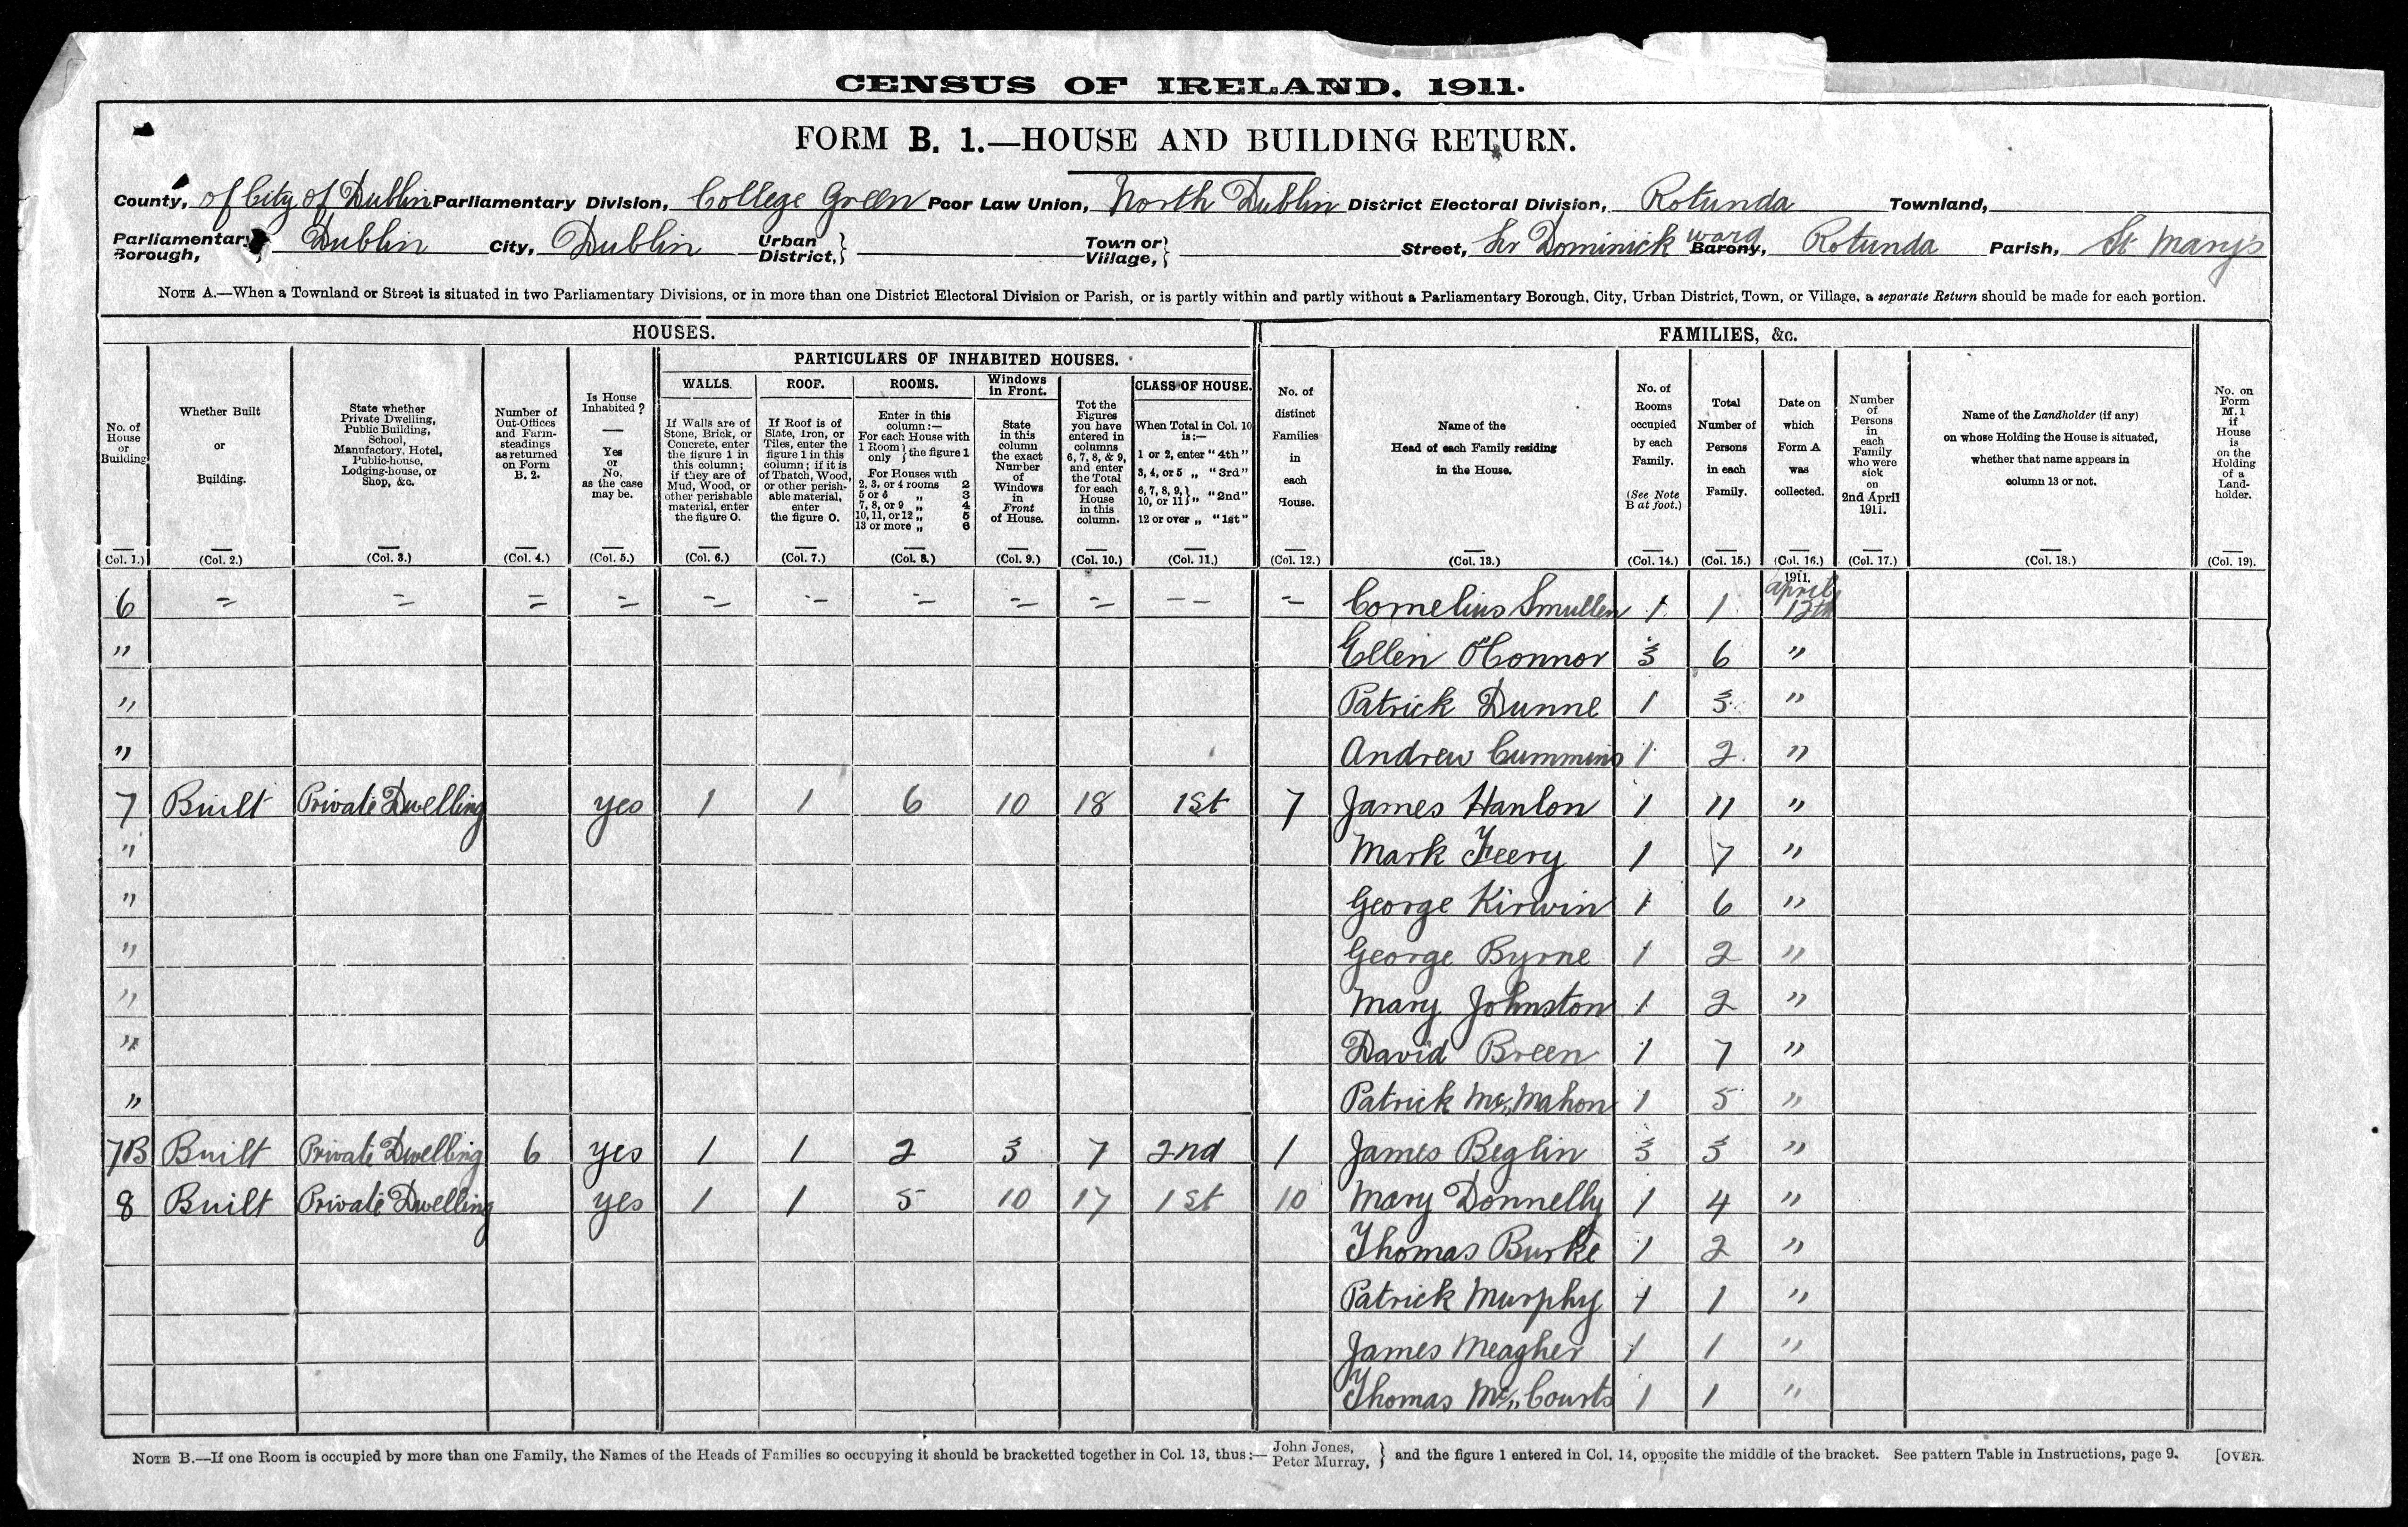 CENSUS OF IRELAND, 1911.
FORM B. 1.—HOUSE AND BUILDING RETURN.
County, of City of Dublin Parliamentary Division, College Green Poor Law Union, North Dublin District Electoral Division, Rotunda Townland,
Parliamentary Borough, } Dublin City, Dublin Urban District, } Town or Village, } Street, Lr Dominick Barony, ward Rotunda Parish, St Mary's
NOTE A.—When a Townland or Street is situated in two Parliamentary Divisions, or in more than one District Electoral Division or Parish, or is partly within and partly without a Parliamentary Borough, City, Urban District, Town, or Village, a separate Return should be made for each portion.
HOUSES. FAMILIES, &c.
PARTICULARS OF INHABITED HOUSES.
WALLS. ROOF. ROOMS. Windows in Front. CLASS OF HOUSE.
No. of House or Building
Whether Built or Building.
State whether Private Dwelling, Public Building, School, Manufactory, Hotel, Public-house, Lodging-house, or Shop, &c.
Number of Out-Offices and Farm-steadings as returned on Form B. 2.
Is House Inhabited? — Yes or No, as the case may be.
If Walls are of Stone, Brick, or Concrete, enter the figure 1 in this column; if they are of Mud, Wood, or other perishable material, enter the figure 0.
If Roof is of Slate, Iron, or Tiles, enter the figure 1 in this column; if it is of Thatch, Wood, or other perishable material, enter the figure 0.
Enter in this column:—
For each House with 1 Room only } the figure 1
For Houses with
2, 3, or 4 rooms 2
5 or 6 „ 3
7, 8, or 9 „ 4
10, 11, or 12 „ 5
13 or more „ 6
State in this column the exact Number of Windows in Front of House.
Tot the Figures you have entered in columns 6, 7, 8, & 9, and enter the Total for each House in this column.
When Total in Col. 10 is:—
1 or 2, enter "4th"
3, 4, or 5 „ "3rd"
6, 7, 8, 9, 10, or 11 } „ "2nd"
12 or over „ "1st"
No. of distinct Families in each House.
Name of the Head of each Family residing in the House.
No. of Rooms occupied by each Family. (See Note B at foot.)
Total Number of Persons in each Family.
Date on which Form A was collected.
Number of Persons in each Family who were sick on 2nd April 1911.
Name of the Landholder (if any) on whose Holding the House is situated, whether that name appears in column 13 or not.
No. on Form M. 1 if House is on the Holding of a Landholder.
(Col. 1.) (Col. 2.) (Col. 3.) (Col. 4.) (Col. 5.) (Col. 6.) (Col. 7.) (Col. 8.) (Col. 9.) (Col. 10.) (Col. 11.) (Col. 12.) (Col. 13.) (Col. 14.) (Col. 15.) (Col. 16.) (Col. 17.) (Col. 18.) (Col. 19).
1911.
6 = = = = = = = = = -- = Cornelius Smullen 1 1 April 12th
" Ellen O'Connor 3 6 "
" Patrick Dunne 1 3 "
" Andrew Cummins 1 2 "
7 Built Private Dwelling yes 1 1 6 10 18 1st 7 James Hanlon 1 11 "
" Mark Feery 1 7 "
" George Kirwin 1 6 "
" George Byrne 1 2 "
" Mary Johnston 1 2 "
" David Breen 1 7 "
" Patrick Mc„Mahon 1 5 "
7B Built Private Dwelling 6 yes 1 1 2 3 7 2nd 1 James Beglin 3 3 "
8 Built Private Dwelling yes 1 1 5 10 17 1st 10 Mary Donnelly 1 4 "
Thomas Burke 1 2 "
Patrick Murphy 1 1 "
James Meagher 1 1 "
Thomas Mc„Courts 1 1 "
NOTE B.—If one Room is occupied by more than one Family, the Names of the Heads of Families so occupying it should be bracketted together in Col. 13, thus:— John Jones, Peter Murray, } and the figure 1 entered in Col. 14, opposite the middle of the bracket. See pattern Table in Instructions, page 9. [OVER.